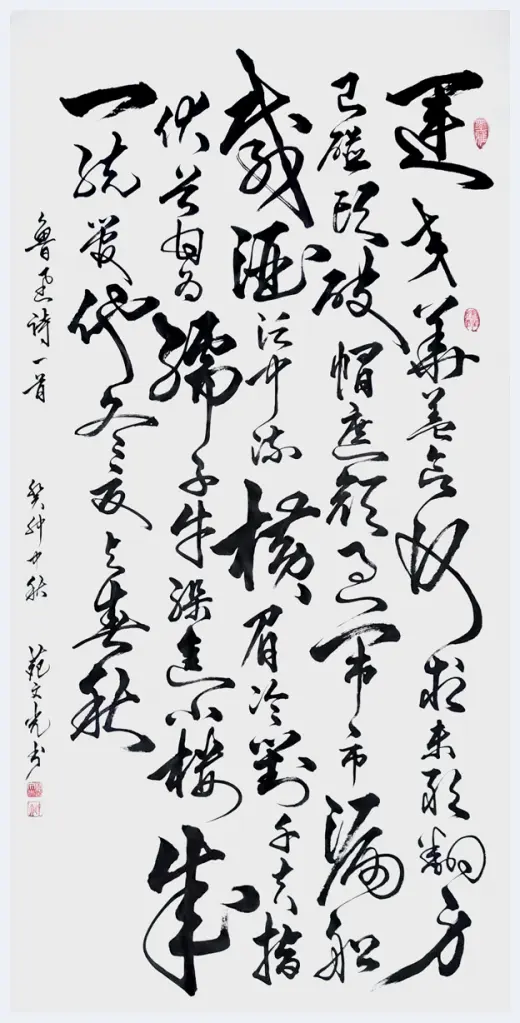 運交華蓋欲何求未敢翻身
已碰頭破帽遮顏過鬧市漏船
載酒泛中流橫眉冷對千夫指
俯首甘為孺子牛躲進小樓成
一統管他冬夏與春秋
魯迅詩一首 癸卯中秋 苑文光書